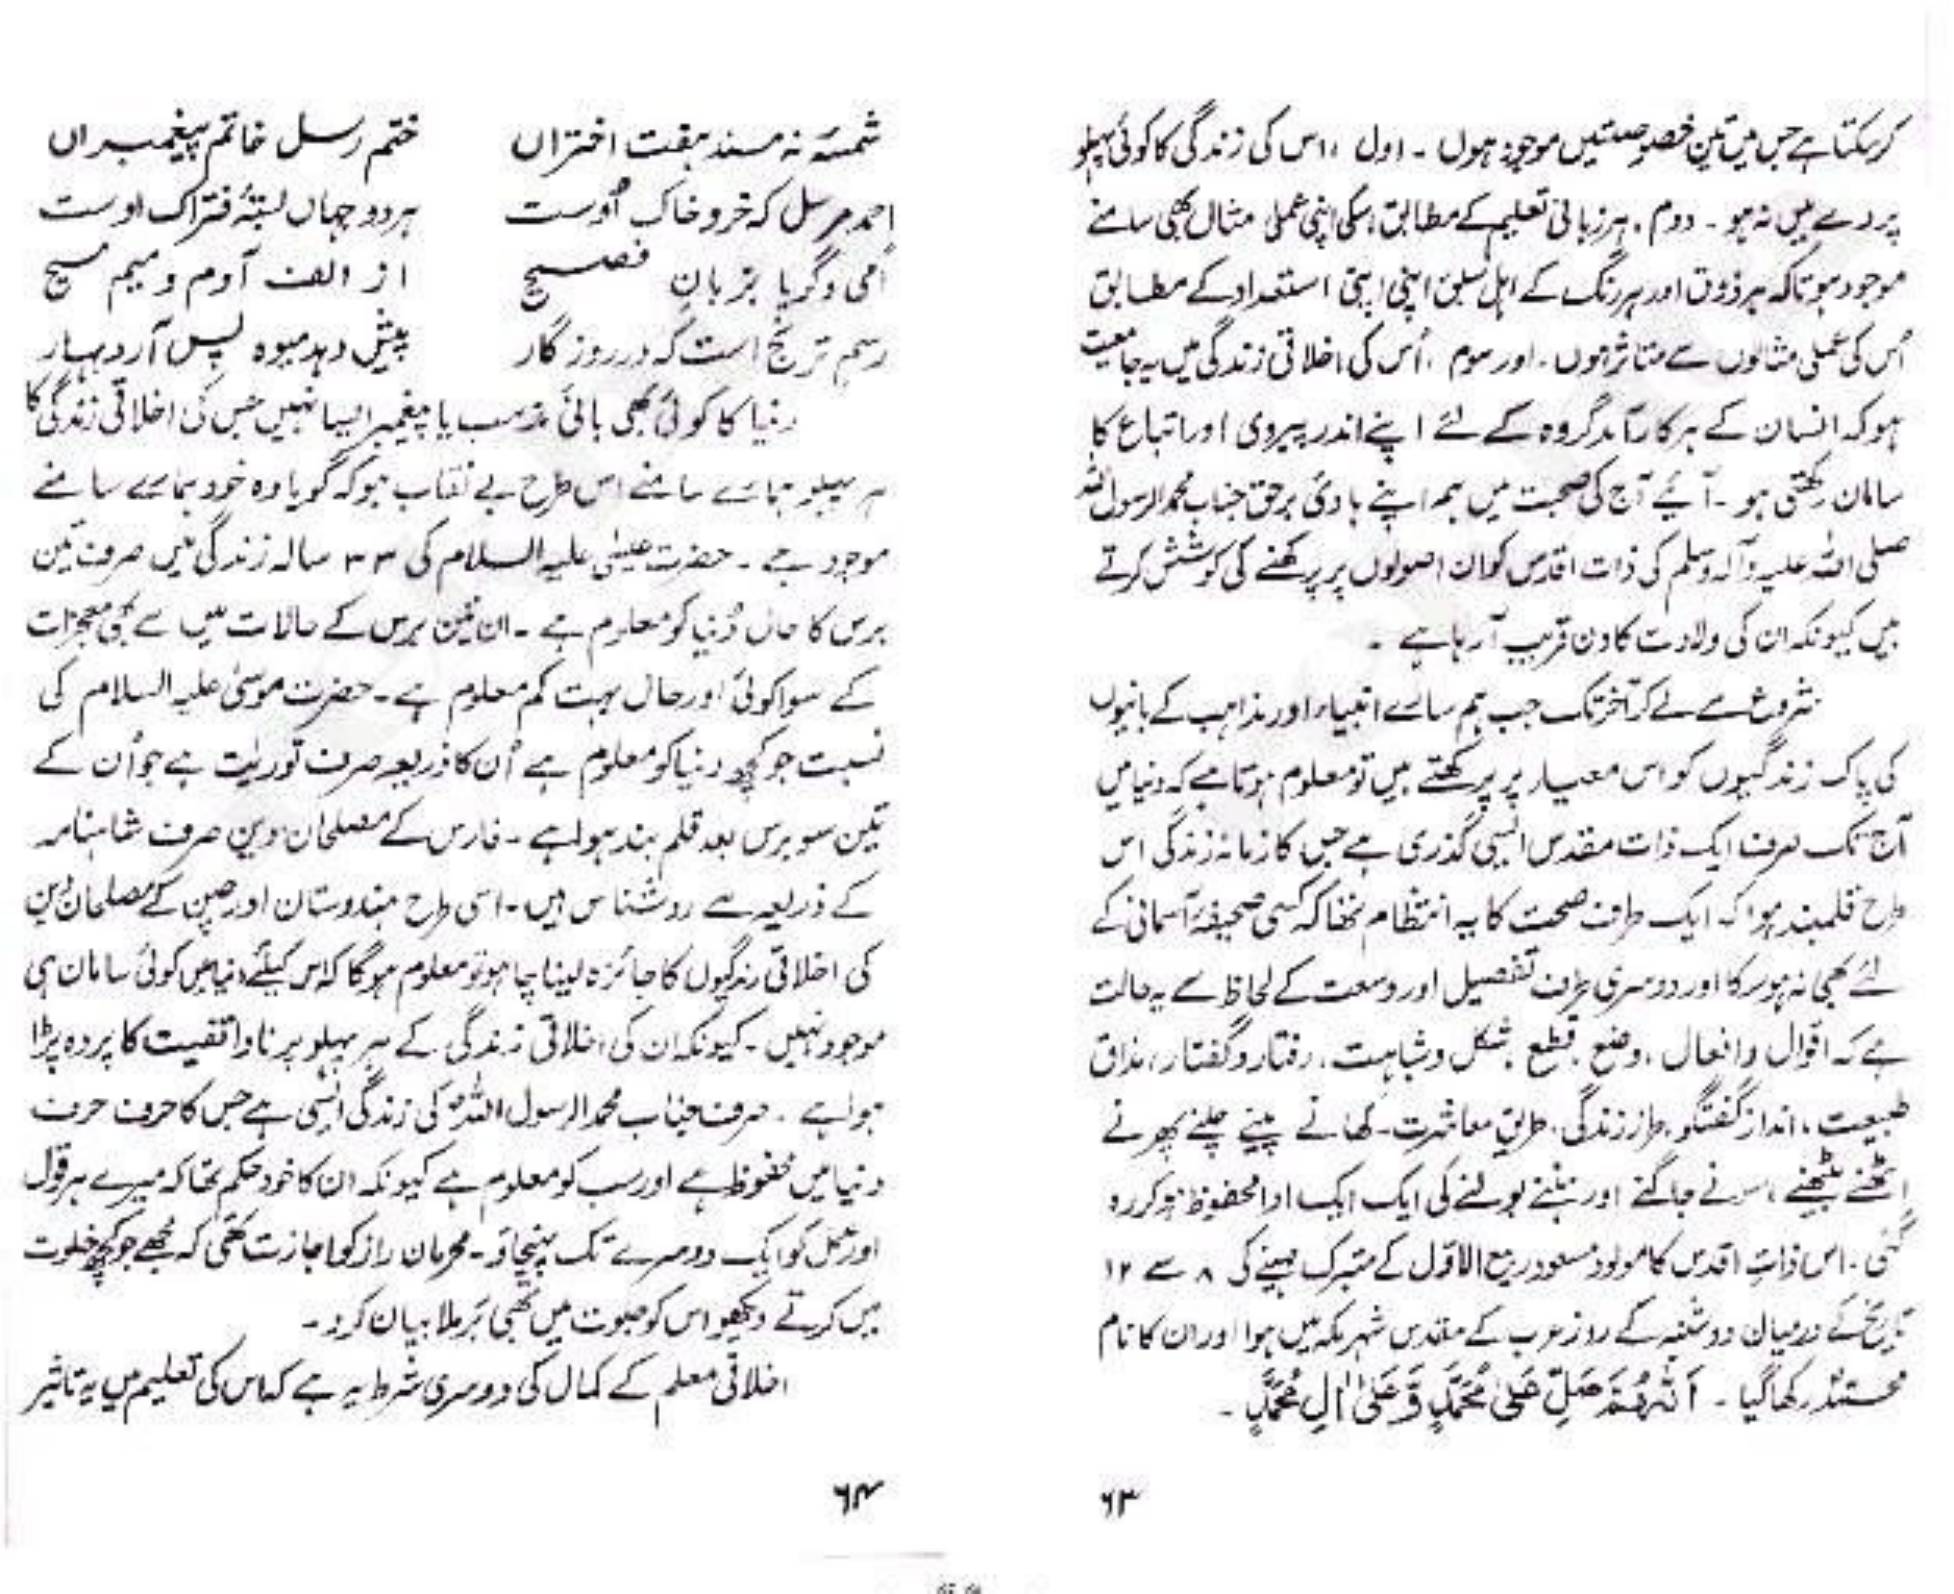 کرسکتا ہے جس میں تین خصوصیتیں موجود ہوں ۔ اول ، اس کی زندگی کا کوئی پہلو
پردے میں نہ ہو ۔ دوم ، ہر زبانی تعلیم کے مطابق اسکی اپنی عملی مثال بھی سامنے
موجود ہو تاکہ ہر ذوق اور ہر رنگ کے اہل سلیقہ اپنی اپنی استعداد کے مطابق
اُس کی عملی مثالوں سے متاثر ہوں ۔ اور سوم ، اُس کی اخلاقی زندگی میں یہ جامعیت
ہو کہ انسان کے ہر کارآمد گروہ کے لئے اپنے اندر پیروی اور اتباع کا
سامان رکھتی ہو ۔ آئیے آج کی صحبت میں ہم اپنے ہادئ برحق جناب محمد الرسول اللہ
صلی اللہ علیہ وآلہ وسلم کی ذات اقدس کو ان اصولوں پر پرکھنے کی کوشش کرتے
ہیں کیونکہ ان کی ولادت کا دن قریب آرہا ہے ۔
شروع سے لے کر آخر تک جب ہم سارے انبیاء اور مذاہب کے بانیوں
کی پاک زندگیوں کو اس معیار پر پرکھتے ہیں تو معلوم ہوتا ہے کہ دنیا میں
آج تک صرف ایک ذات مقدس ایسی گذری ہے جس کا زمانہ زندگی اس
طرح قلمبند ہوا کہ ایک طرف صحت کا یہ انتظام تھا کہ کسی صحیفۂ آسمانی کے
لئے بھی نہ ہوسکا اور دوسری طرف تفصیل اور وسعت کے لحاظ سے یہ حالت
ہے کہ اقوال و افعال ، وضع قطع ، شکل و شباہت ، رفتار و گفتار ، مذاق
طبیعت ، انداز گفتگو ، طرز زندگی ، طریق معاشرت ۔ کھانے پینے چلنے پھرنے
اٹھنے بیٹھنے ، سونے جاگنے اور ہنسنے بولنے کی ایک ایک ادا محفوظ ہوکر رہ
گئی ۔ اس ذاتِ اقدس کا مولود مسعود ربیع الاوّل کے متبرک مہینے کی ۸ سے ۱۲
تاریخ کے درمیان دو شنبہ کے روز عرب کے مقدس شہر مکہ میں ہوا اور ان کا نام
محمدؐ رکھا گیا ۔ اَللّٰھُمَّ صَلِّ عَلیٰ مُحَمَّدٍ وَّ عَلیٰ اٰلِ مُحَمَّدٍ ۔
۶۳
شمسۂ نہ مسند ہفت اختراں ختم رسل خاتم پیغمبراں
احمد مرسل کہ خرد خاک اُوست ہر دو جہاں بستۂ فتراک اوست
اُمی و گویا بزبانِ فصیح از الف آدم و میم مسیح
رسم ترنج است کہ در روزگار پیش دہد میوہ پس آرد بہار
دنیا کا کوئی بھی بانئ مذہب یا پیغمبر ایسا نہیں جس کی اخلاقی زندگی کا
ہر پہلو ہمارے سامنے اس طرح بے نقاب ہو کہ گویا وہ خود ہمارے سامنے
موجود ہے ۔ حضرت عیسیٰ علیہ السلام کی ۳۳ سالہ زندگی میں صرف تین
برس کا حال دُنیا کو معلوم ہے ۔ ان تین برس کے حالات میں سے بھی معجزات
کے سوا کوئی اور حال بہت کم معلوم ہے ۔ حضرت موسیٰ علیہ السلام کی
نسبت جو کچھ دنیا کو معلوم ہے اُن کا ذریعہ صرف توریت ہے جو اُن کے
تین سو برس بعد قلم بند ہوا ہے ۔ فارس کے مصلحان دین صرف شاہنامہ
کے ذریعہ سے روشناس ہیں ۔ اسی طرح ہندوستان اور چین کے مصلحان دین
کی اخلاقی زندگیوں کا جائزہ لینا چاہو تو معلوم ہوگا کہ اس کیلئے دنیا میں کوئی سامان ہی
موجود نہیں ۔ کیونکہ ان کی اخلاقی زندگی کے ہر پہلو پر ناواقفیت کا پردہ پڑا
ہوا ہے ۔ صرف جناب محمد الرسول اللہؐ کی زندگی ایسی ہے جس کا حرف حرف
دنیا میں محفوظ ہے اور سب کو معلوم ہے کیونکہ ان کا خود حکم تھا کہ میرے ہر قول
اور عمل کو ایک دوسرے تک پہنچاؤ ۔ محرمان راز کو اجازت تھی کہ مجھے جو کچھ خلوت
میں کرتے دیکھو اس کو جلوت میں بھی بَرملا بیان کردو ۔
اخلاقی معلم کے کمال کی دوسری شرط یہ ہے کہ اس کی تعلیم میں یہ تاثیر
۶۴